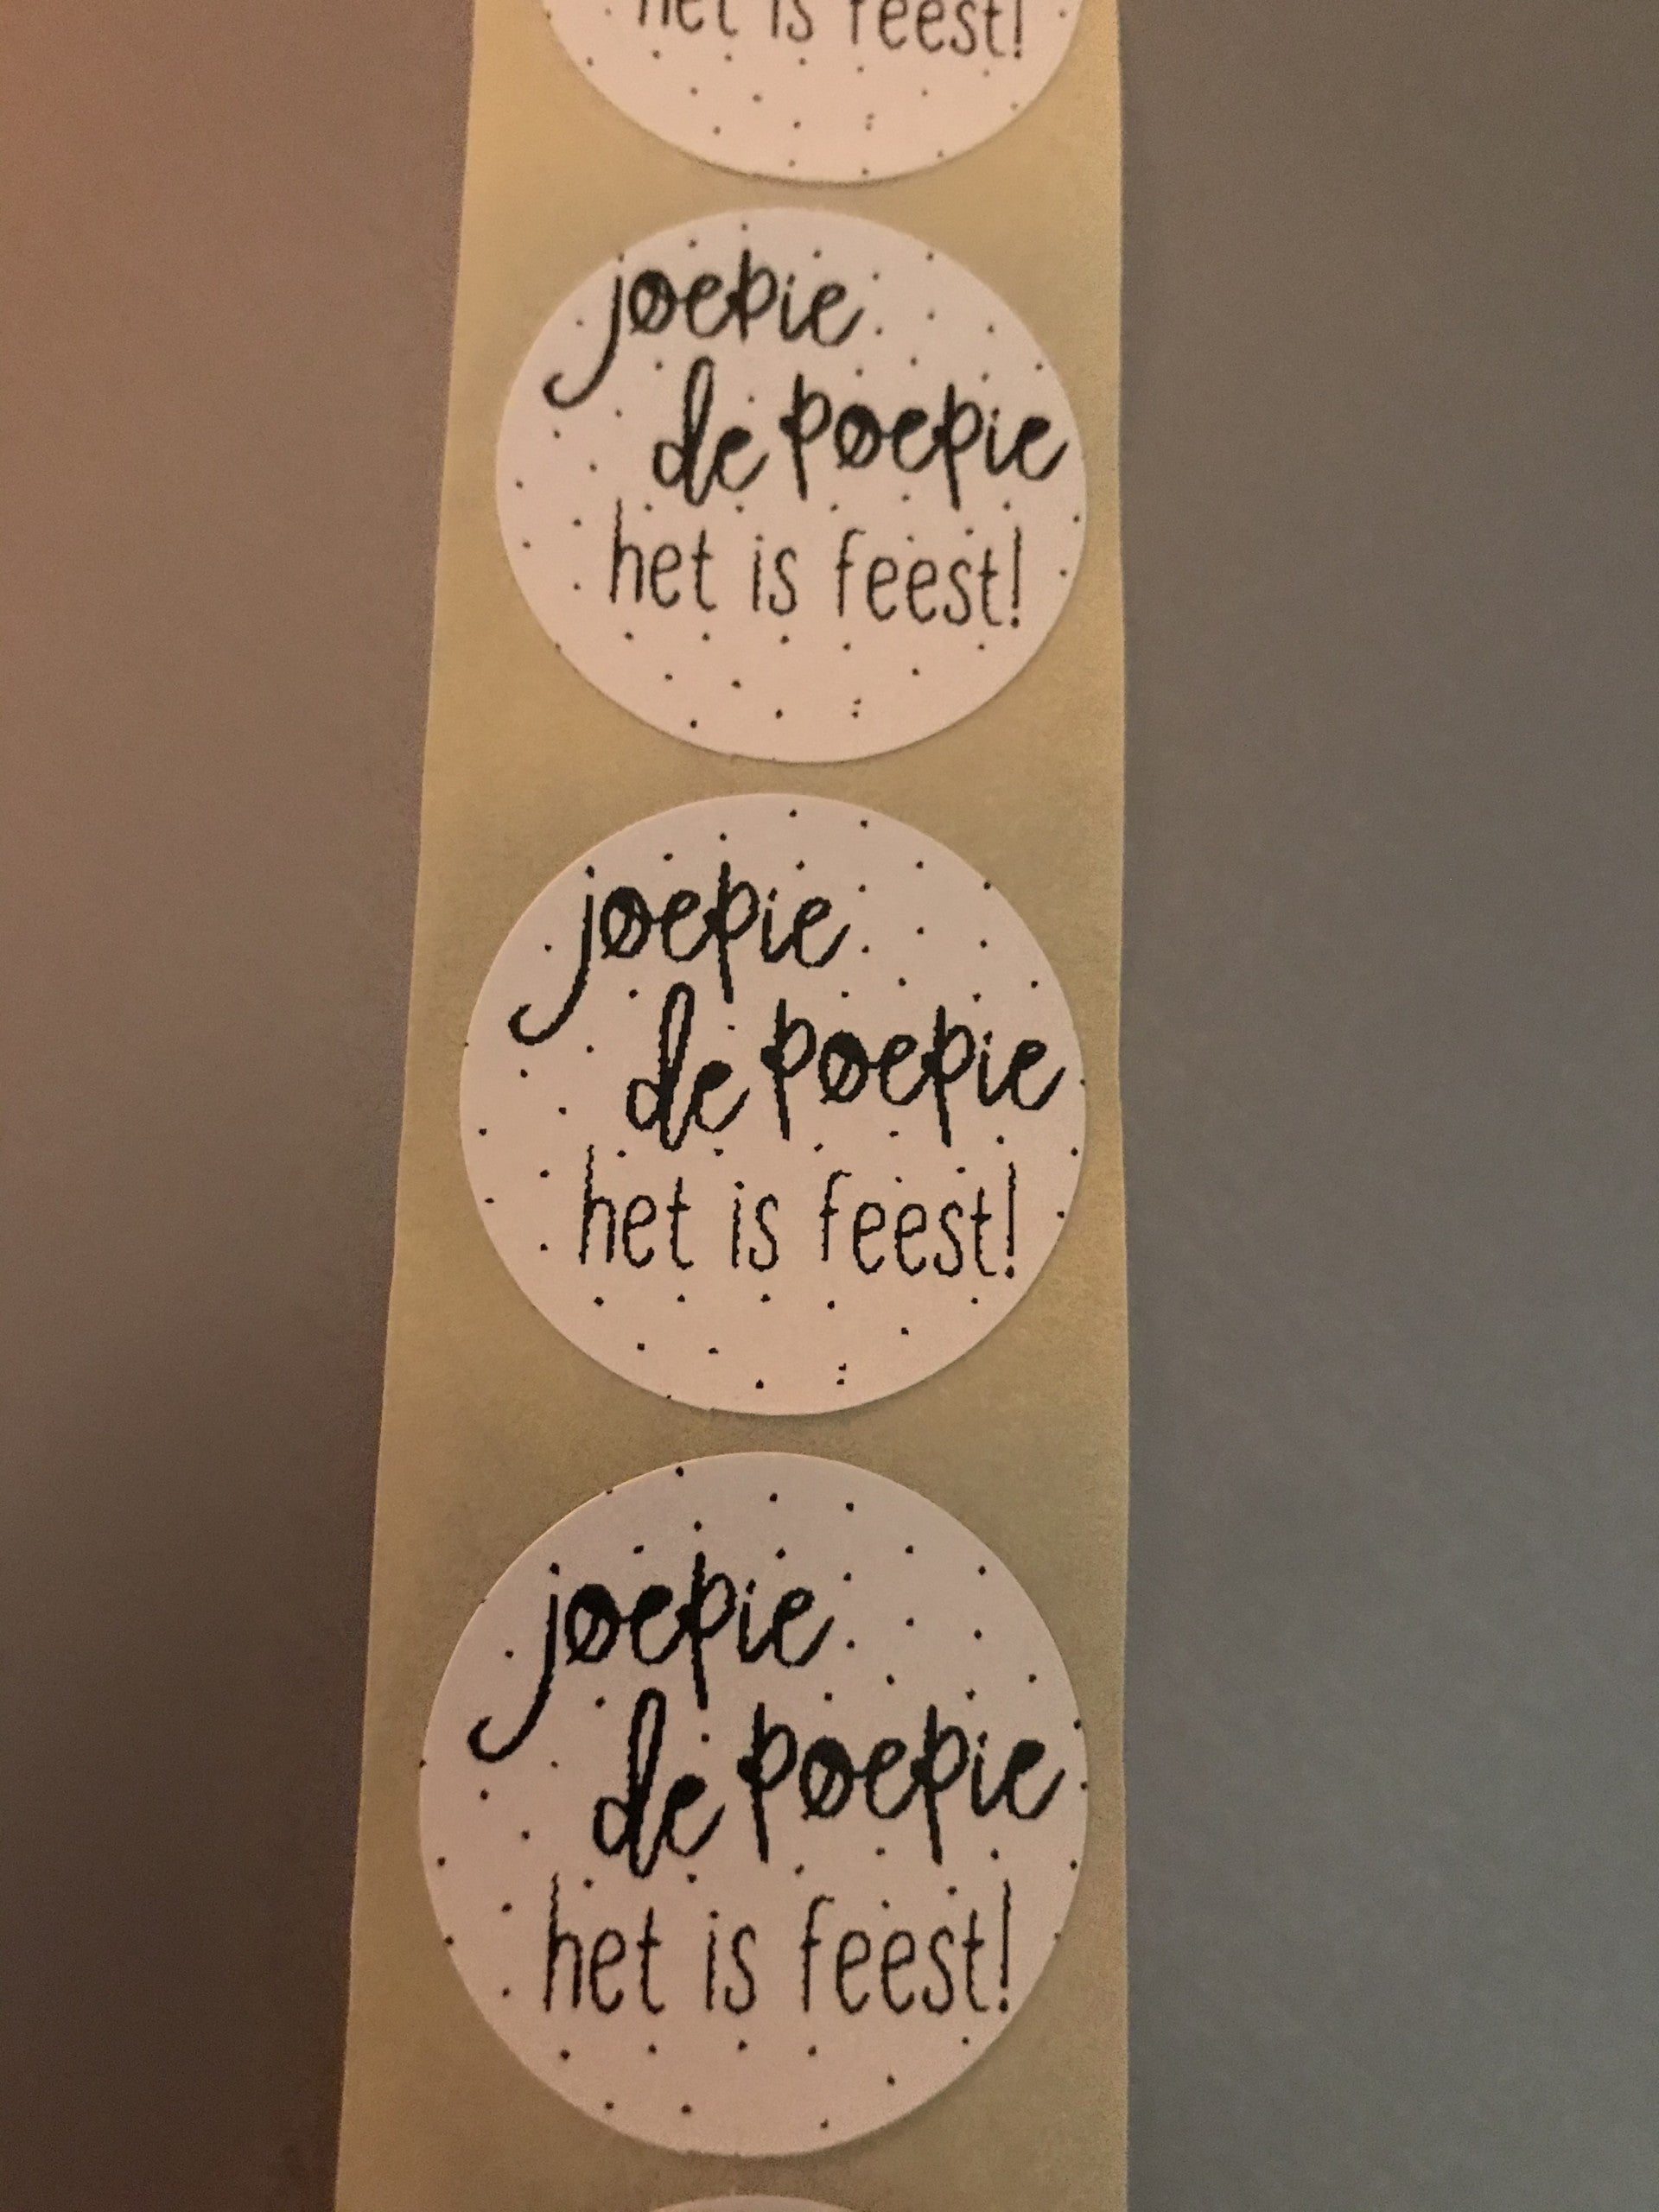 het is feest!
joepie
de poepie
het is feest!
joepie
de poepie
het is feest!
joepie
de poepie
het is feest!